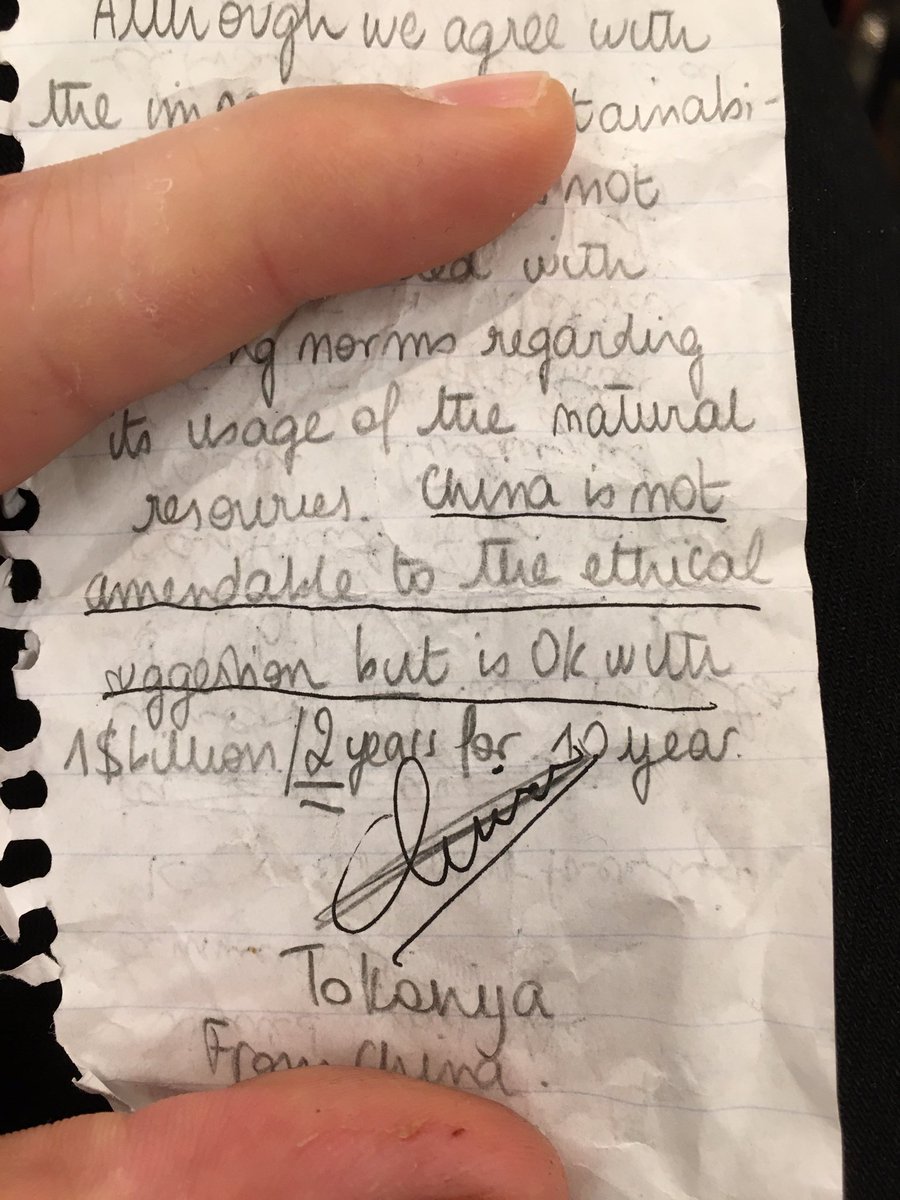 Although we agree with
the tainabi-
not
with
norms regarding
its usage of the natural
resources. China is not
amendable to the ethical
suggestion but is Ok with
1$billion/2 years for 10 year.
To Kanya
From China.